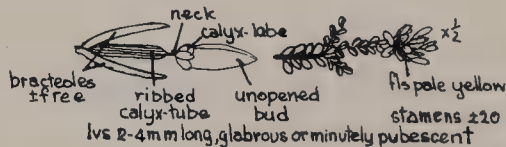 neck
calyx-lobe
x½
bracteoles
±free
ribbed
calyx-tube
unopened
bud
fls pale yellow
stamens ±20
lvs 2-4mm long, glabrous or minutely pubescent